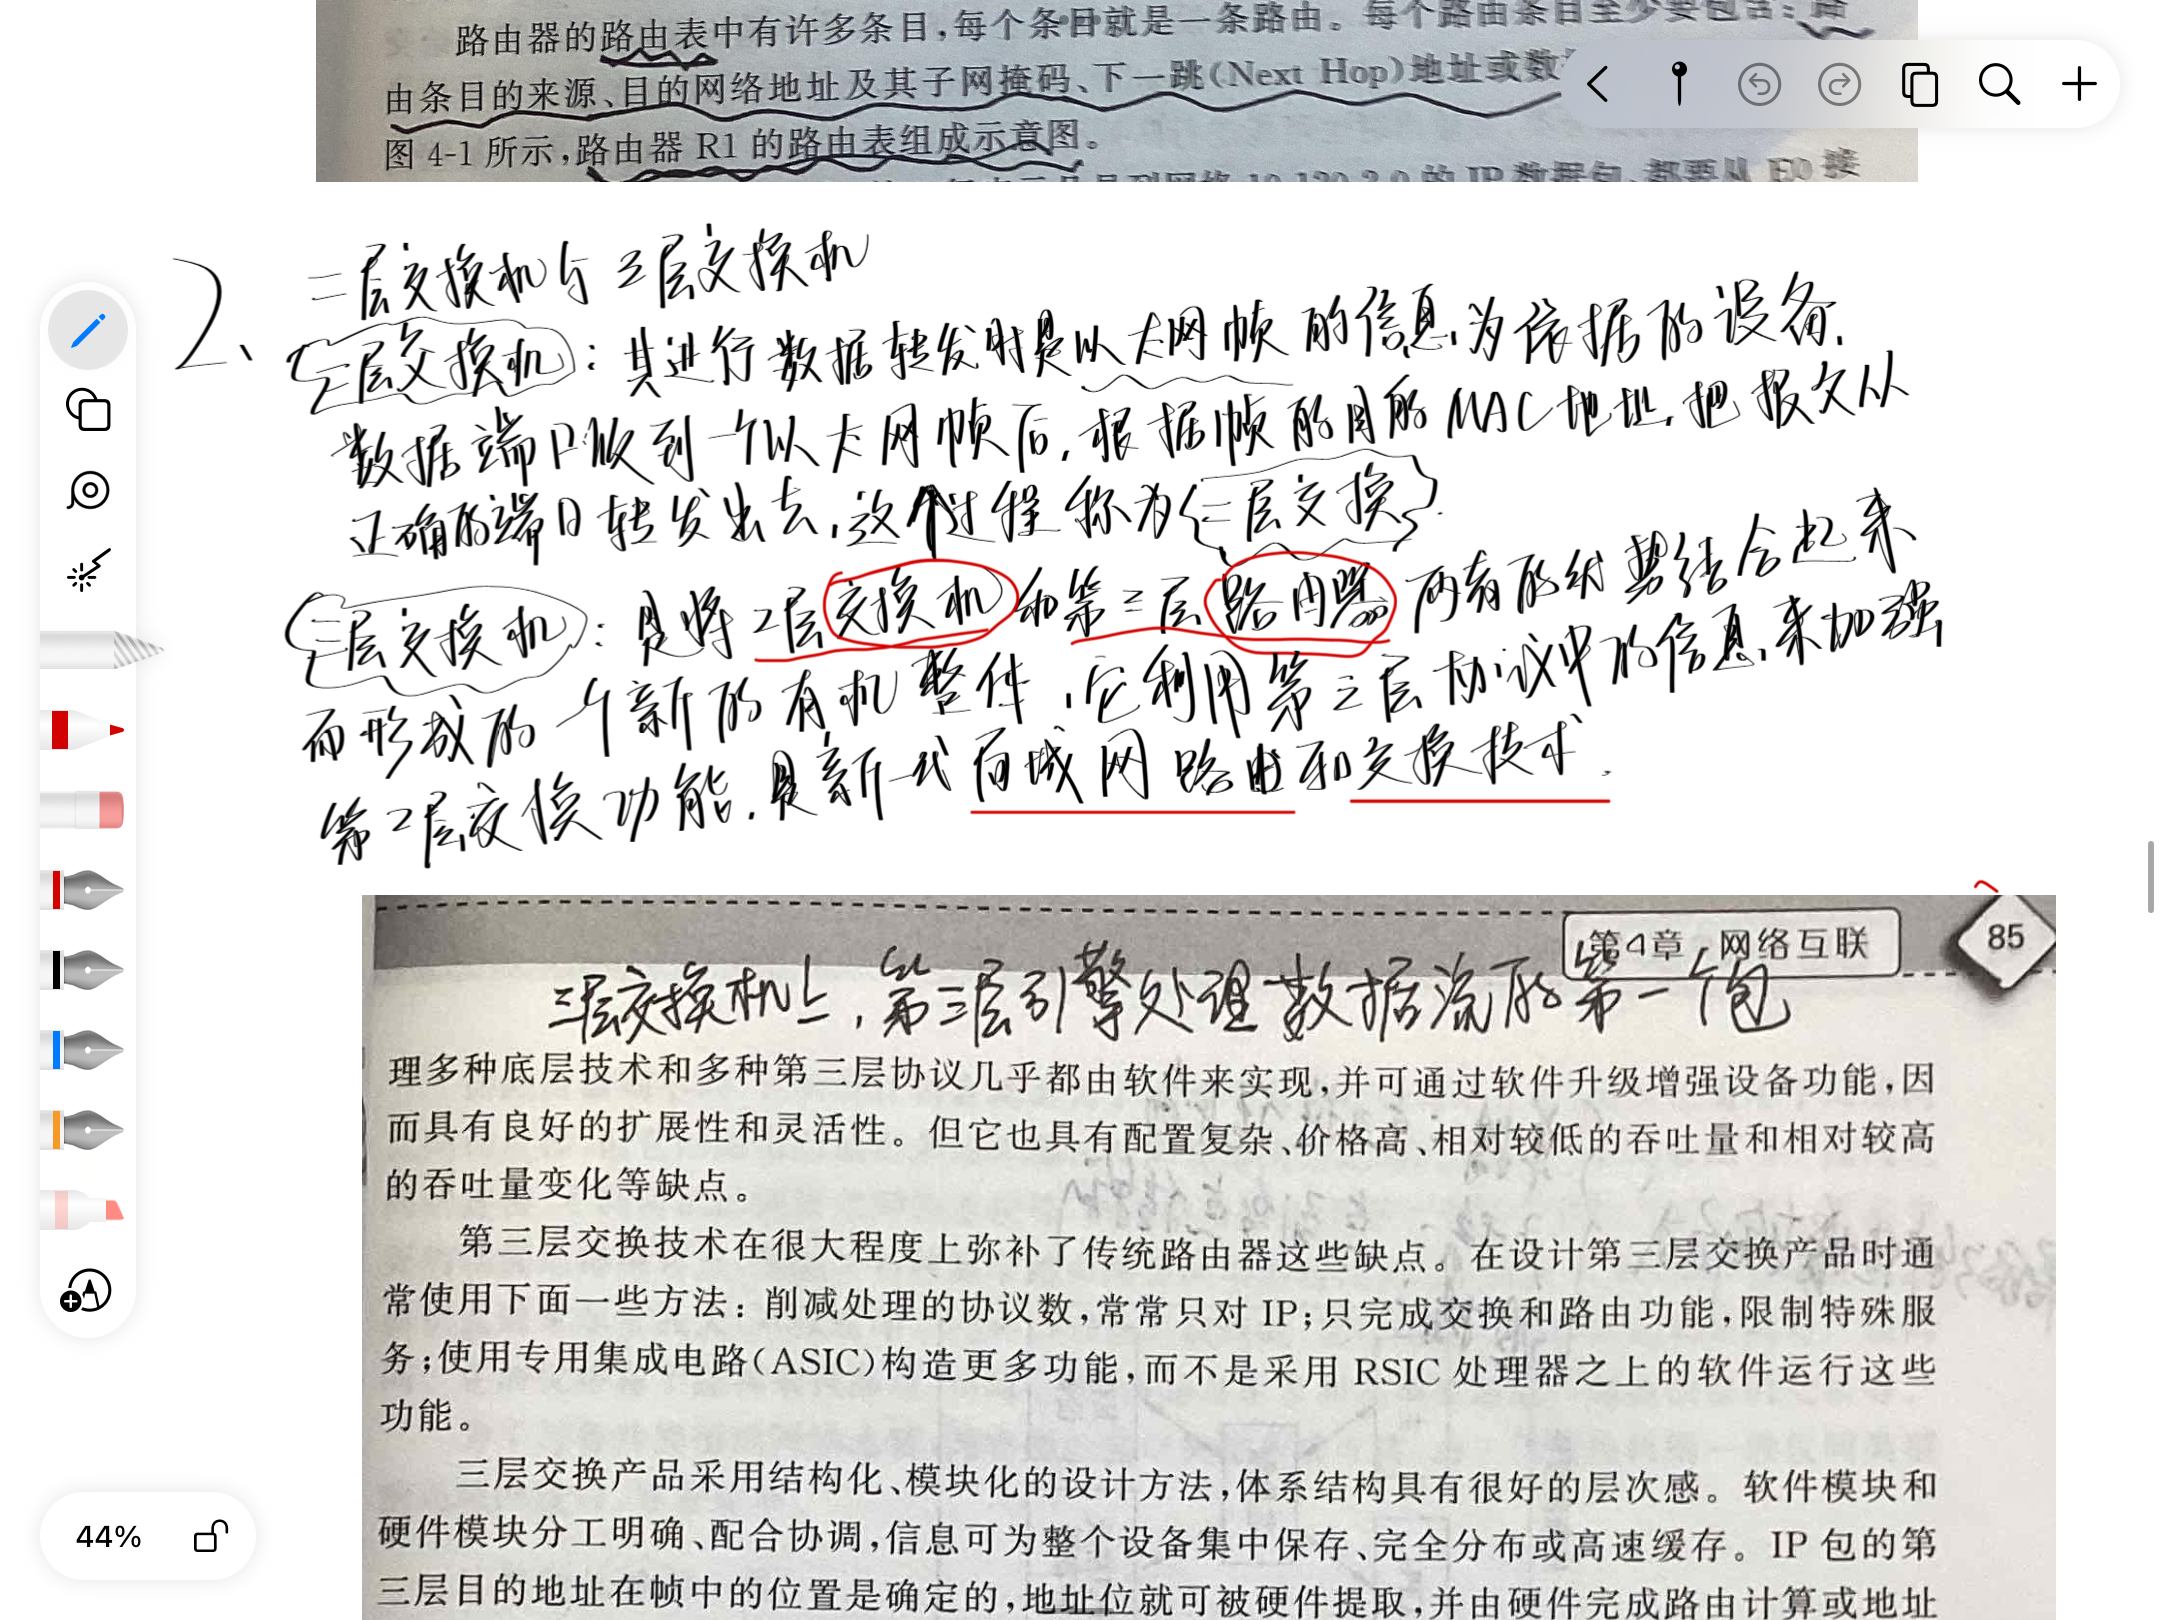 路由器的路由表中有许多条目,每个条目就是一条路由。每个路由条目至少要包含:路
由条目的来源、目的网络地址及其子网掩码、下一跳(Next Hop)地址或数
图 4-1 所示,路由器 R1 的路由表组成示意图。
到网络 10.120.2.0 的 IP 数据包,都要从 E0 接
2、二层交换机与三层交换机
二层交换机:其进行数据转发时是以太网帧的信息为依据的设备.
数据端口收到一个以太网帧后,根据帧的目的MAC地址,把报文从
正确的端口转发出去,这个过程称为{二层交换}.
三层交换机:是将2层交换机和第三层路由器两者的优势结合起来
而形成的一个新的有机整体,它利用第三层协议中的信息来加强
第2层交换功能,是新一代局域网路由和交换技术.
第4章 网络互联
85
三层交换机上,第三层引擎处理数据流的第一个包
理多种底层技术和多种第三层协议几乎都由软件来实现,并可通过软件升级增强设备功能,因
而具有良好的扩展性和灵活性。但它也具有配置复杂、价格高、相对较低的吞吐量和相对较高
的吞吐量变化等缺点。
第三层交换技术在很大程度上弥补了传统路由器这些缺点。在设计第三层交换产品时通
常使用下面一些方法:削减处理的协议数,常常只对 IP;只完成交换和路由功能,限制特殊服
务;使用专用集成电路(ASIC)构造更多功能,而不是采用 RSIC 处理器之上的软件运行这些
功能。
三层交换产品采用结构化、模块化的设计方法,体系结构具有很好的层次感。软件模块和
硬件模块分工明确、配合协调,信息可为整个设备集中保存、完全分布或高速缓存。IP 包的第
三层目的地址在帧中的位置是确定的,地址位就可被硬件提取,并由硬件完成路由计算或地址
44%